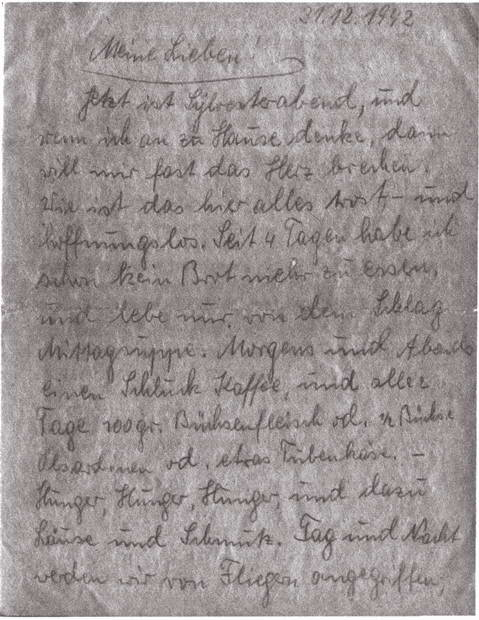 31.12.1942
Meine Lieben!
Jetzt ist Sylvesterabend, und
wenn ich an zu Hause denke, dann
will mir fast das Herz brechen.
Wie ist das hier alles trost- und
hoffnungslos. Seit 4 Tagen habe ich
schon kein Brot mehr zu essen,
und lebe nur von dem Schlag
Mittagsuppe. Morgens und Abends
einen Schluck Kaffee, und alle 2
Tage 100 gr. Büchsenfleisch od. ½ Büchse
Ölsardinen od. etwas Tubenkäse. –
Hunger, Hunger, Hunger, und dazu
Läuse und Schmutz. Tag und Nacht
werden wir von Fliegern angegriffen,